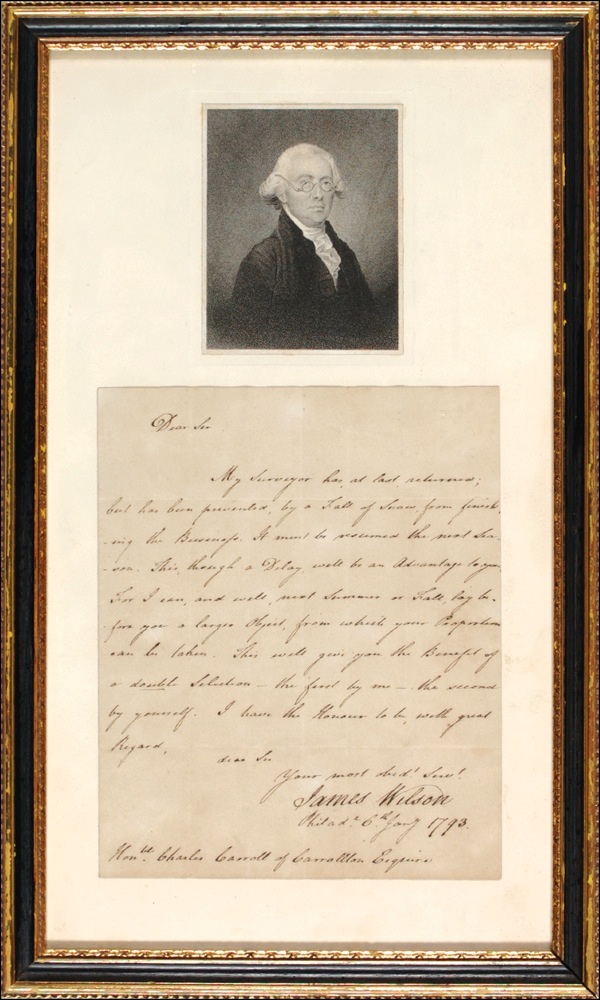 Dear Sir
My Surveyor has, at last, returned;
but has been prevented, by a Fall of Snow from finish-
-ing the Business. It must be resumed the next Sea-
-son. This, though a Delay, will be an Advantage to you.
For I can, and will, next Summer or Fall, lay be-
-fore you a larger Object, from which your Proportion
can be taken. This will give you the Benefit of
a double Selection — the first by me — the second
by yourself. I have the Honour to be, with great
Regard,
dear Sir
Your most obedt Servt
James Wilson
Philada 6th Jany 1793.
Honble Charles Carroll of Carrollton Esquire